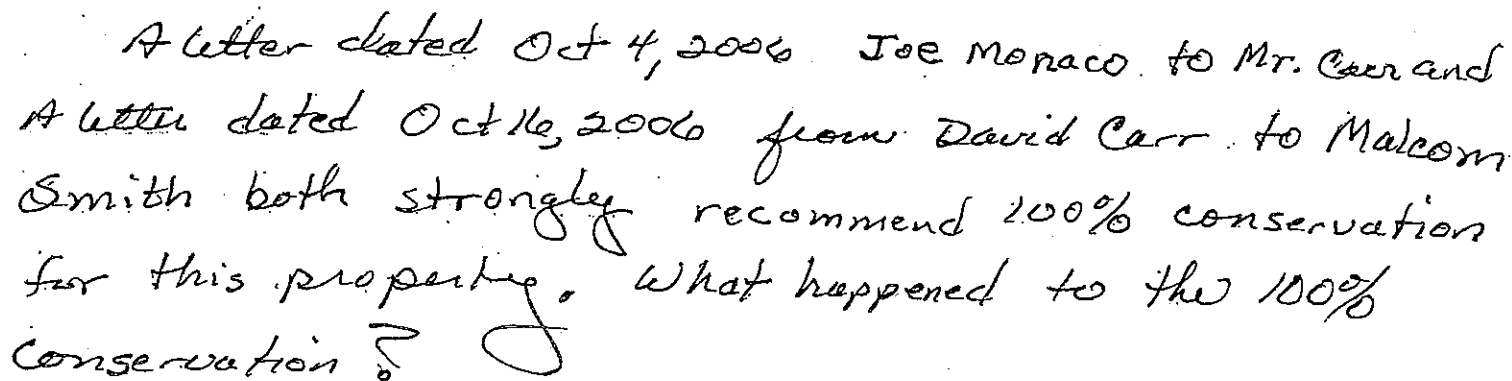 A letter dated Oct 4, 2006 Joe Monaco to Mr. Carr and
A letter dated Oct 16, 2006 from David Carr to Malcom
Smith both strongly recommend 100% conservation
for this property. What happened to the 100%
conservation?